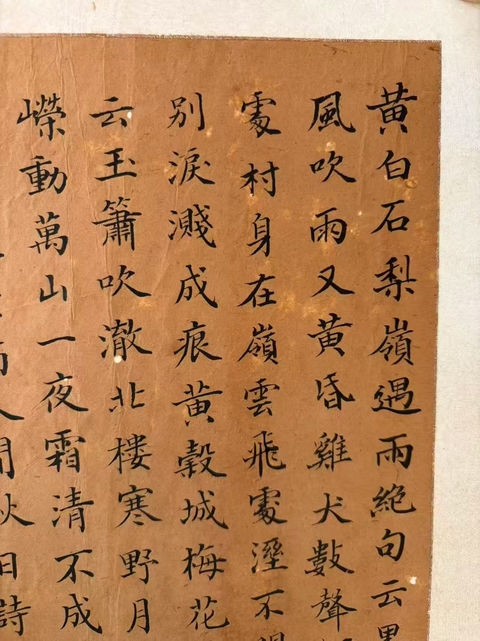 黄白石梨嶺遇雨絶句云黒
風吹雨又黄昏雞犬數聲
處村身在嶺雲飛處溼不
別淚濺成痕黄縠城梅花
云玉簫吹澈北樓寒野月
嶸動萬山一夜霜清不成
人間秋日詩